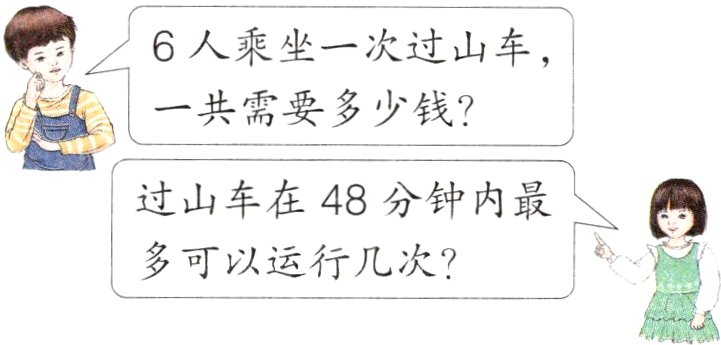 6人乘坐一次过山车，
一共需要多少钱？
过山车在48分钟内最
多可以运行几次？